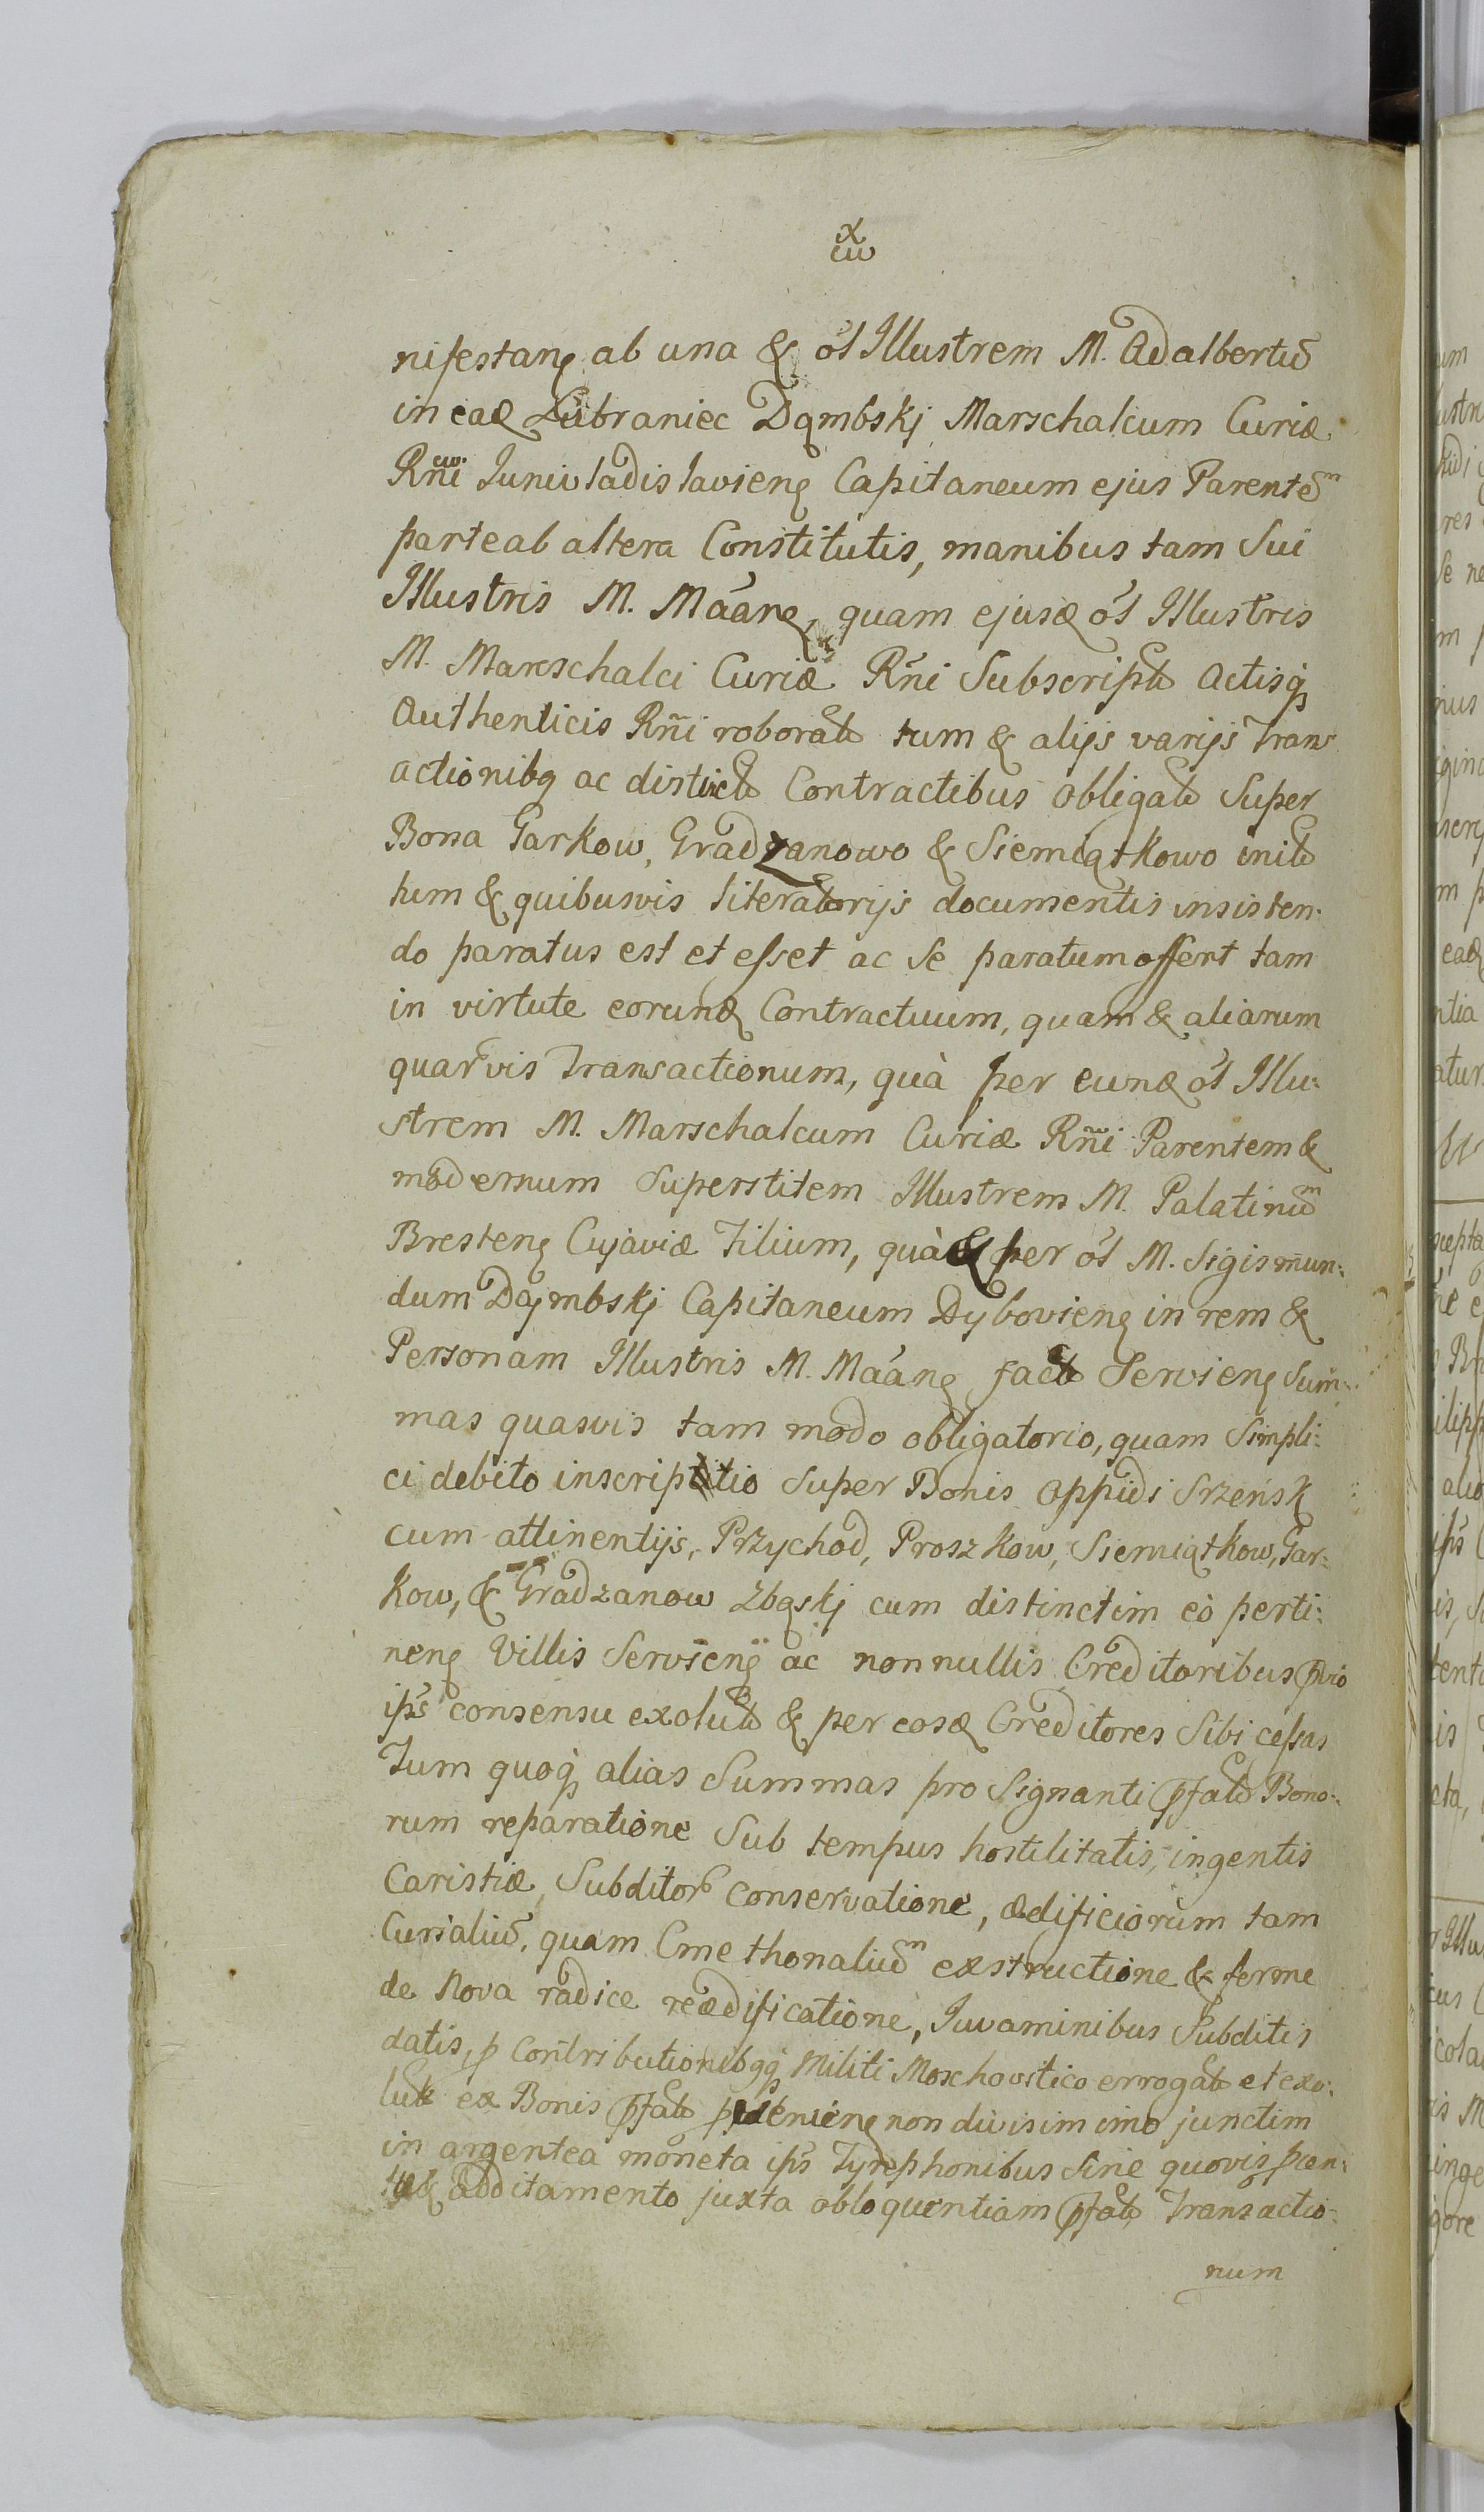 nifestanę ab una & ol Illustrem M. Adalbertũ
in eadę Lubraniec Dąmbskj Marschalcum Curiæ
Rñi Junivladislavienę Capitaneum ejus Parentem
parte ab altera Constitutis, manibus tam Sui
Illustris M. Máanę, quam ejusdę ol Illustris
M. Marschalci Curiæ Rñi Subscript Actisq
Authenticis Rñi roborat tum & alijs varijs Trans
actionibq ac distinct Contractibus obligat Super
Bona Garkow, Gradzanowo & Siemiątkowo init
tum & quibusvis literatorijs documentis insisten:
do paratus est et esset ac Se paratum offert tam
in virtute eorundę Contractuum, quam & aliarum
quarvis Transactionum, quà per eundę ol Illu:
strem M. Marschalcum Curiæ Rñi Parentem &
modernum Superstitem Illustrem M. Palatinum
Brestenę Cujaviæ Filium, quà & per ol M. Sigismun:
dum Dąmbskj Capitaneum Dybovienę in rem &
Personam Illustris M. Máanę fact Servienę Sum:
mas quasvis tam modo obligatorio, quam Simpli:
ci debito inscriptitio Super Bonis Oppidi Srzeńsk
cum attinentijs, Przychod, Proszkow, Siemiątkow, Gar:
kow, & Gradzanow Zbąskj cum distinctim eò perti:
nenę Villis Servienę ac nonnullis Creditoribus pvio
ips consensu exolut & per eosdę Creditores Sibi cessas
Tum quoq alias Summas pro Signanti pfat Bono:
rum reparatione Sub tempus hostilitatis, ingentis
Caristiæ Subditor conservatione, ædificiorum tam
Curialiũ, quam Cmethonalium exstructione & ferme
de Nova radice reædificatione, Juvaminibus Subditis
datis, p Contributionibqq Militi Moschovitico errogat et exo:
lut ex Bonis pfat venienę non divisim imo junctim
in argentea moneta ips Tympphonibus Sine quovis
additamento juxta obloquentiam pfat Transactio:
num